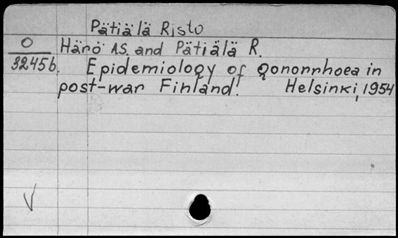 Pätiälä Risto
O Härö A.S. and Pätiälä R.
3245b. Epidemiology of gonorrhoea in
post-war Finland! Helsinki, 1954